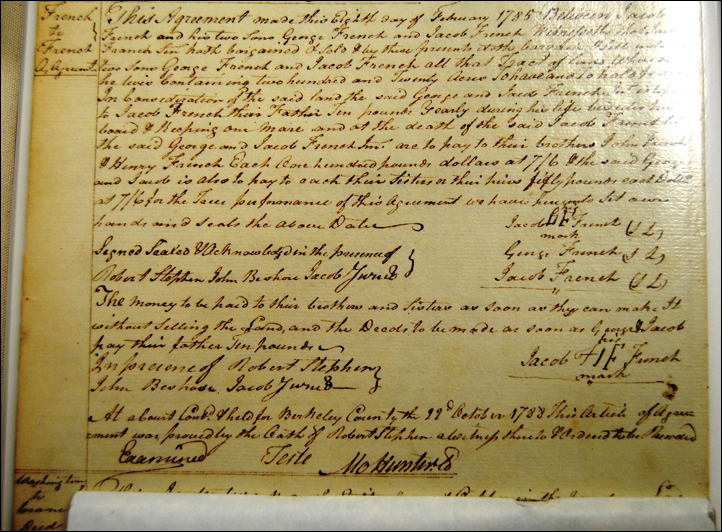 French
to
French
Agreement
This Agreement made this Eighth day of February 1785 Between Jacob
French and his two Sons George French and Jacob French Witnesseth that
French Senr. hath bargained & Sold & by these presents doth bargain & Sell unto
two Sons George French and Jacob French all that Tract of land
he lives Containing two hundred and Twenty Acres
In Consideration of the said land the said George and Jacob French
to Jacob French their Father Ten pounds Yearly during his life
board & Keeping one Mare and at the death of the said Jacob French
the said George and Jacob French Junr. are to pay to their brothers John French
& Henry French Each One hundred pounds dollars at 7/6 & the said George
and Jacob is also to pay to each their Sisters or their heirs fifty pounds each
at 7/6 for the True performance of this Agreement we have hereunto Set our
hands and Seals the above Date
Jacob French (S L)
mark
Signed Sealed & Acknowledged in the presence of
George French (S L)
Robert Stephen John Beshore Jacob
Jacob French (S L)
The Money to be paid to their brothers and Sisters as soon as they can make It
without Selling the Land, and the Deeds to be made as soon as George & Jacob
pay their father Ten pounds
his
In presence of Robert Stephen
Jacob French
John Beshore Jacob
mark
At a Court Contd. & held for Berkeley County the 22d October 1788 This Article of Agree
ment was proved by the Oath of Robert Stephen a witness thereto & Ordered to be Recorded
Examined Teste Mo Hunter
Washington
to
Deed